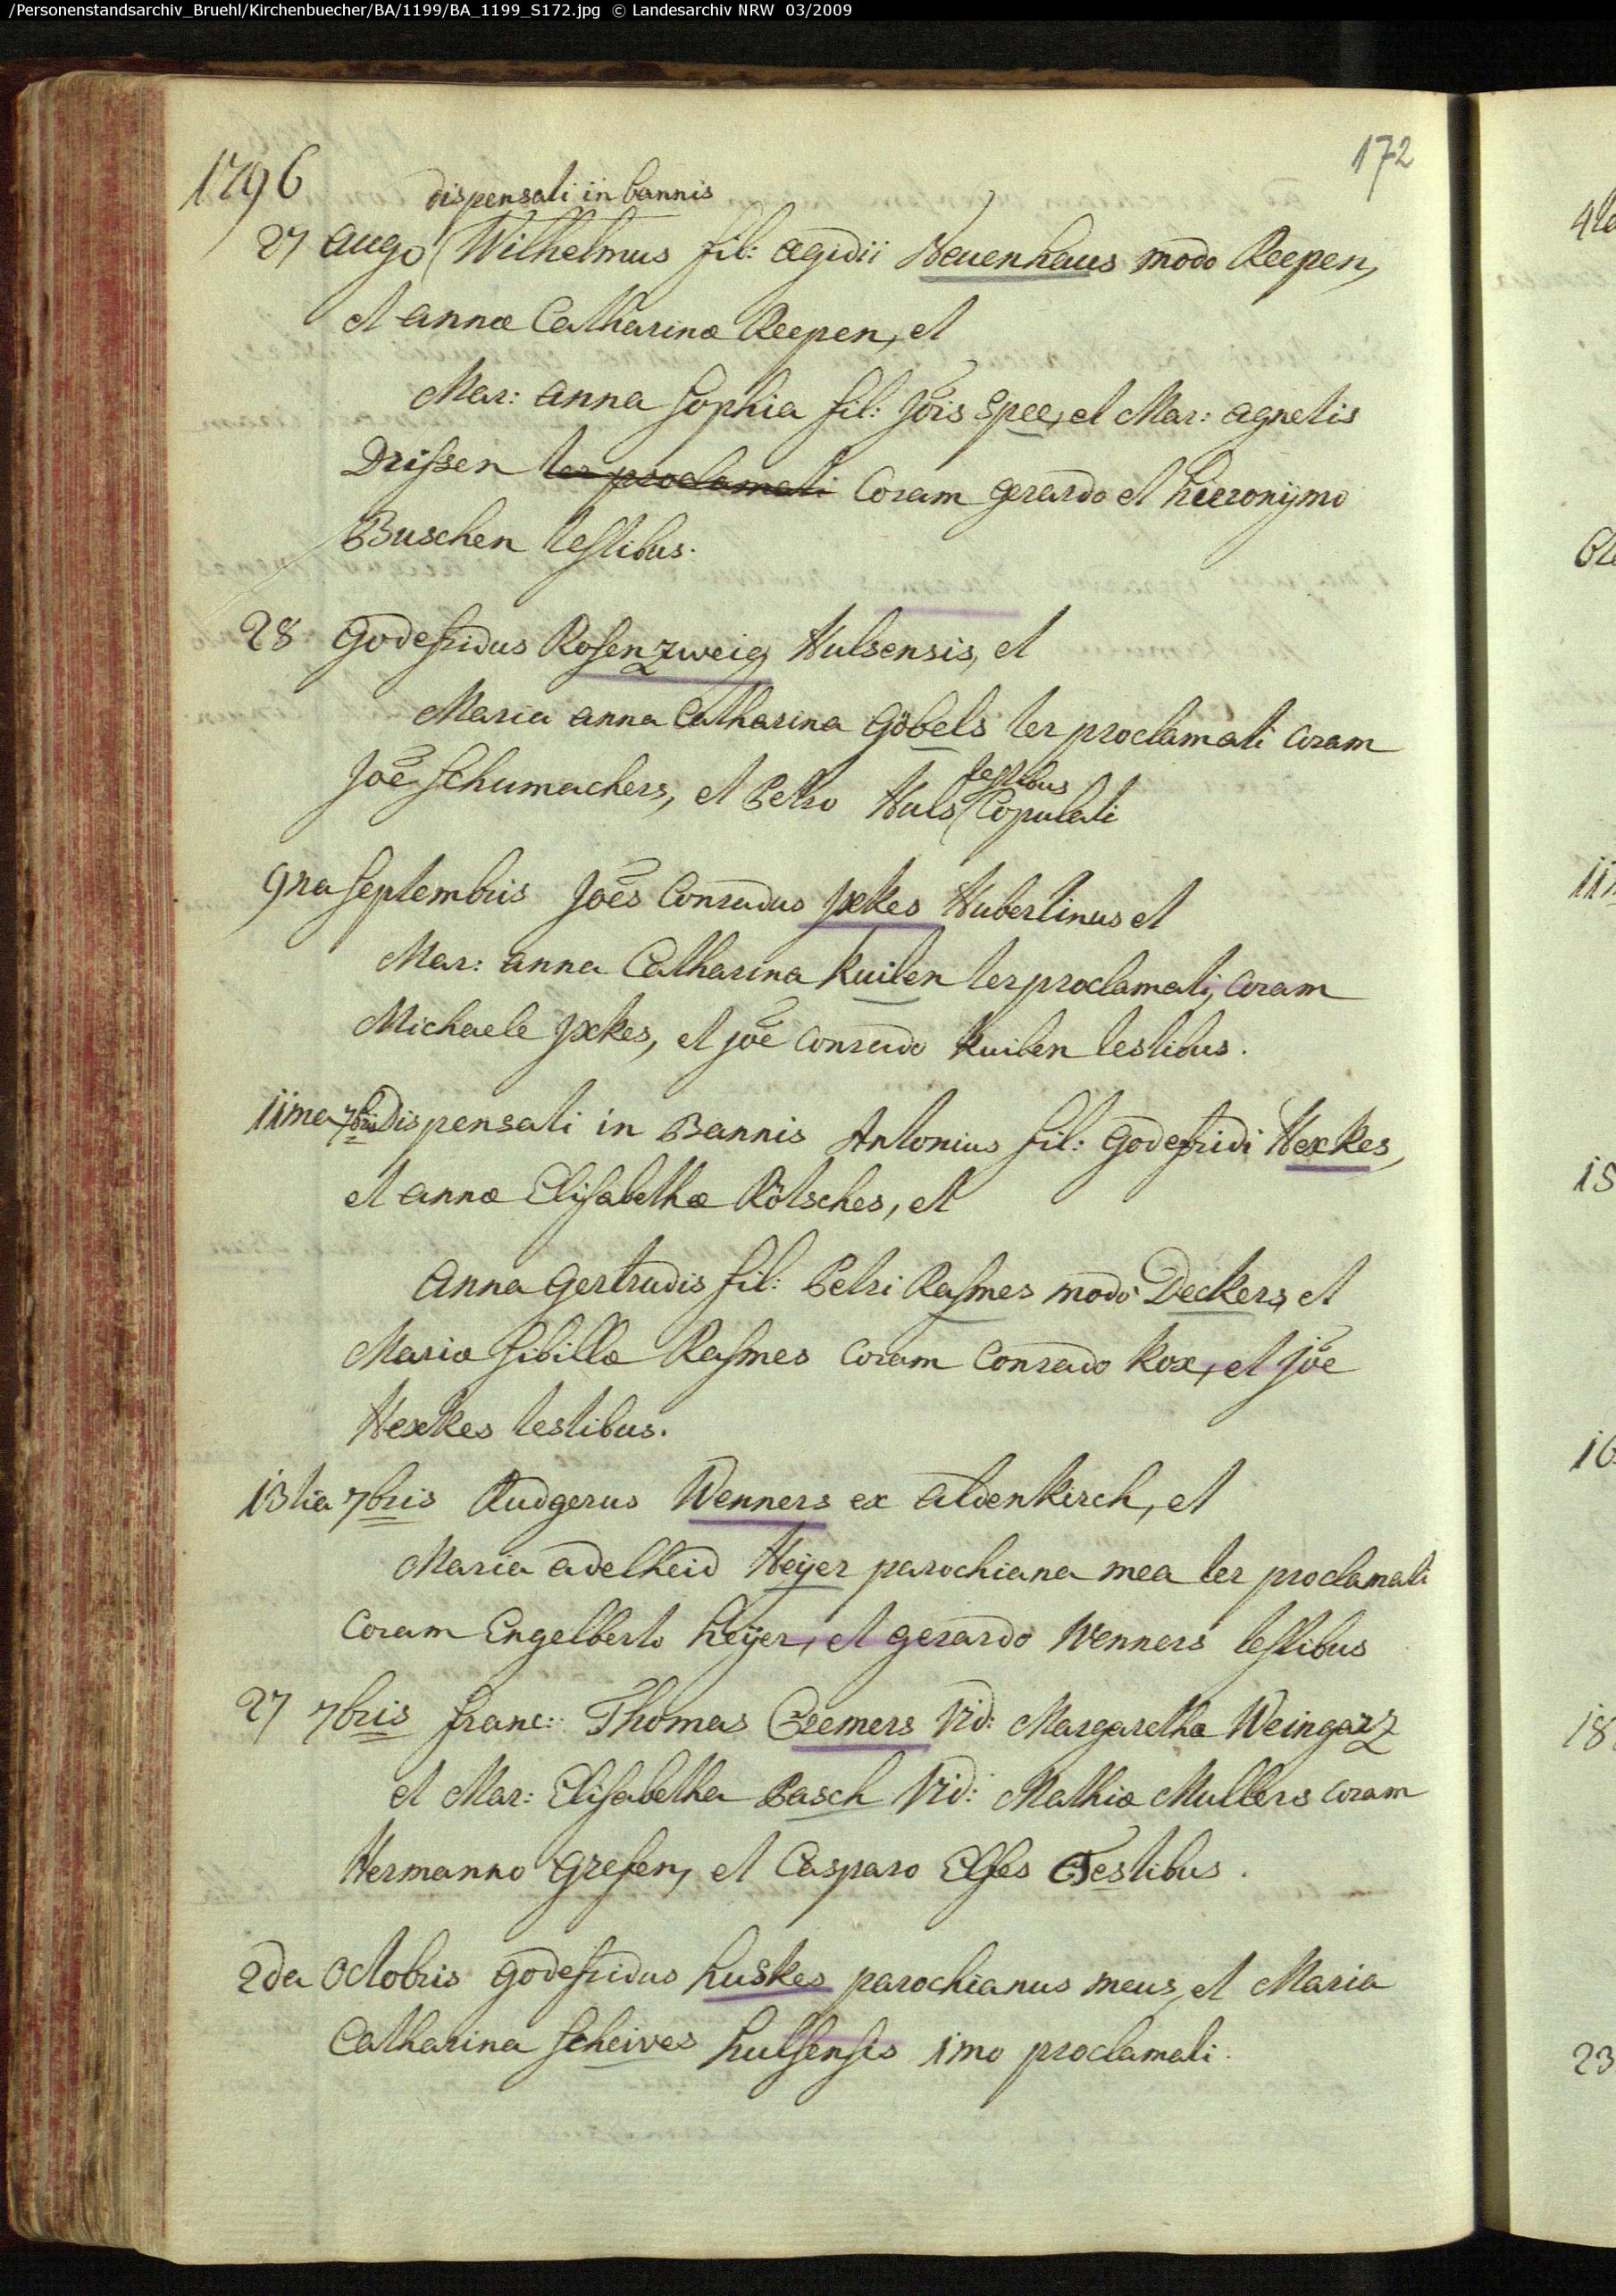 /Personenstandsarchiv_Bruehl/Kirchenbuecher/BA/1199/BA_1199_S172.jpg © Landesarchiv NRW 03/2009
172
1796
dispensati in bannis
27 augo Wilhelmus fil: ægidii Neuenhaus modo Reepen,
et annæ Catharinæ Reepen, et
Mar: anna Sophia fil: Jois Spee, et Mar: agnetis
Drissen ter proclamati Coram gerardo et hieronÿmo
Buschen testibus.
28 Godefridus Rosenzweig Hulsensis, et
Maria anna Catharina Göbels ter proclamati coram
Joe Schumachers, et Petro Huls testibus Copulati
9na Septembris Joes Conradus Jxkes Hubertinus et
Mar: anna Catharina Kuilen ter proclamati, coram
Michaele Jxkes, et joe conrado Kuilen testibus.
11ma 7bris Dispensati in Bannis Antonius fil: Godefridi Hexkes,
et annæ Elisabethæ Rötsches, et
Anna Gertrudis fil: Petri Rasmes modo Deckers, et
Mariæ Sibillæ Rasmes coram Conrado Kox, et joe
Hexkes testibus.
13tia 7bris Rudgerus Wenners ex aldenkirch, et
Maria adelheid Heijer parochiana mea ter proclamati
Coram Engelberto heijer, et gerardo Wenners testibus
27 7bris franc: Thomas Cremers Vid: Margaretha Weingarz
et Mar: Elisabetha Basch Vid: Mathiæ Mullers coram
Hermanno Grefen, et Casparo Elfes Testibus.
2da Octobris godefridus huskes parochianus meus, et Maria
Catharina Scheives hulsensis 1mo proclamati.